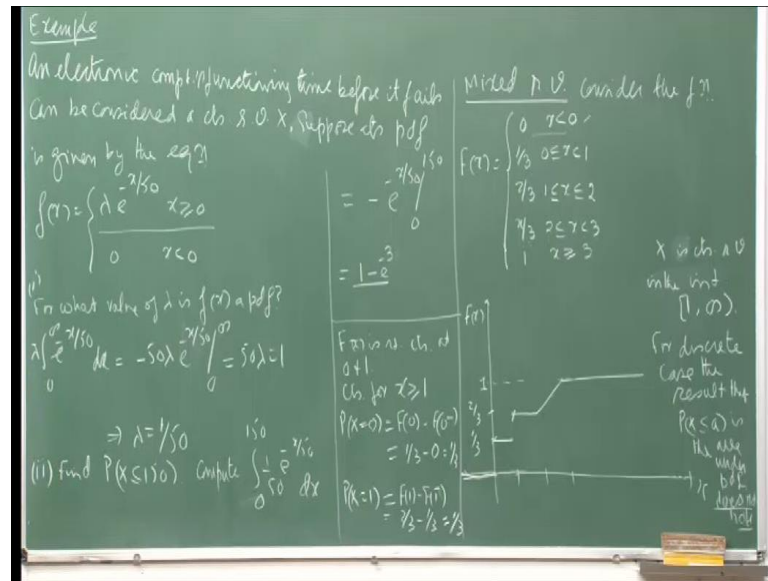 Example
An electronic compt. functioning time before it fails
Can be considered a cts r.v. X, Suppose its pdf
is given by the eqn
f(x) = { λ e^{-x/50} x ≥ 0
0 x < 0
(i)
For what value of λ is f(x) a pdf?
λ ∫_0^∞ e^{-x/50} dx = -50λ e^{-x/50} /_0^∞ = 50λ = 1
⇒ λ = 1/50
(ii) Find P(X ≤ 150) Compute ∫_0^{150} 1/50 e^{-x/50} dx
= - e^{-x/50} /_0^{150}
= 1 - e^{-3}
F(x) is not cts. at
0 & 1.
Cts for x ≥ 1
P(X=0) = F(0) - F(0^-)
= 1/3 - 0 = 1/3
P(X=1) = F(1) - F(1^-)
= 2/3 - 1/3 = 1/3
Mixed r.v. consider the fn.
F(x) = { 0 x < 0
1/3 0 ≤ x < 1
2/3 1 ≤ x ≤ 2
x/3 2 ≤ x < 3
1 x ≥ 3
F(x)
1
2/3
1/3
X is cts. r.v
in the int
[1, ∞).
For discrete
case the
result that
P(X ≤ a) is
the area
under
pdf
does not
hold